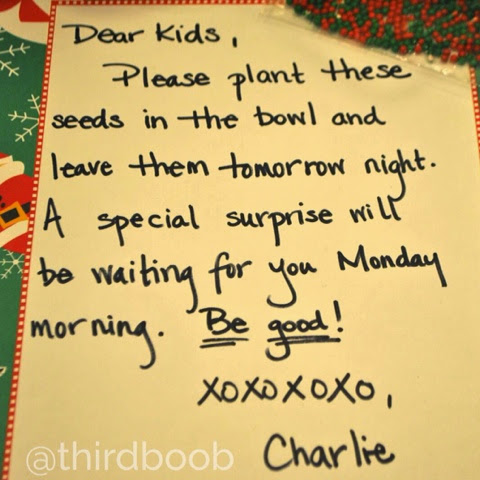 Dear Kids,
Please plant these
seeds in the bowl and
leave them tomorrow night.
A special surprise will
be waiting for you Monday
morning. Be good!
XOXOXOXO,
Charlie
@thirdboob